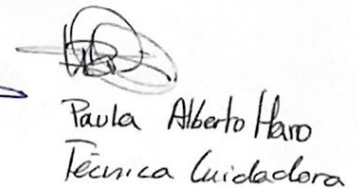 Paula Alberto Haro
Técnica Cuidadora